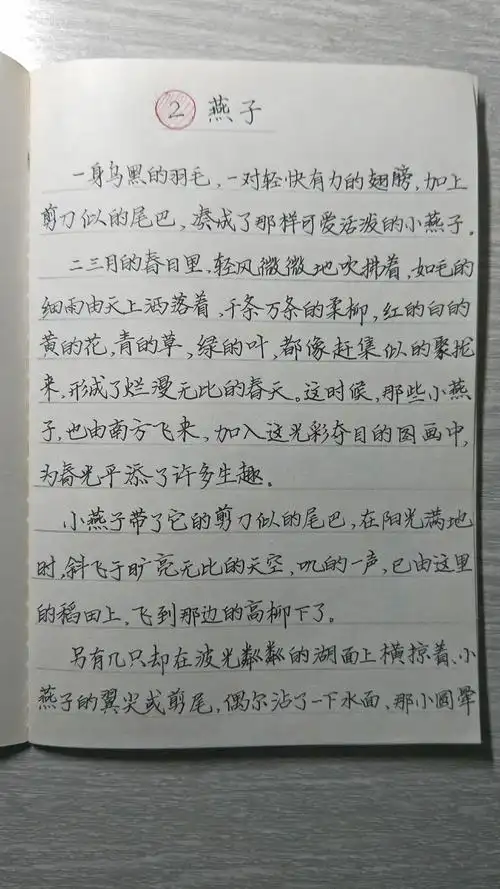 2 燕子
一身乌黑的羽毛，一对轻快有力的翅膀，加上
剪刀似的尾巴，凑成了那样可爱活泼的小燕子。
二三月的春日里，轻风微微地吹拂着，如毛的
细雨由天上洒落着，千条万条的柔柳，红的白的
黄的花，青的草，绿的叶，都像赶集似的聚拢
来，形成了烂漫无比的春天。这时候，那些小燕
子，也由南方飞来，加入这光彩夺目的图画中，
为春光平添了许多生趣。
小燕子带了它的剪刀似的尾巴，在阳光满地
时，斜飞于旷亮无比的天空，叽的一声，已由这里
的稻田上，飞到那边的高柳下了。
另有几只却在波光粼粼的湖面上横掠着，小
燕子的翼尖或剪尾，偶尔沾了一下水面，那小圆晕